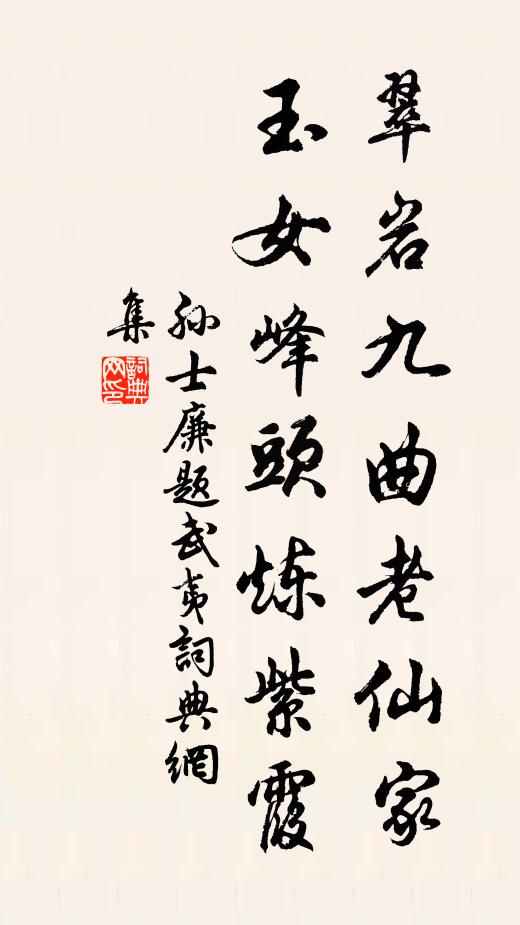 翠岩九曲老仙家
玉女峰頭炼紫霞
孙士廉题武夷詞典網
集
詞典
网印